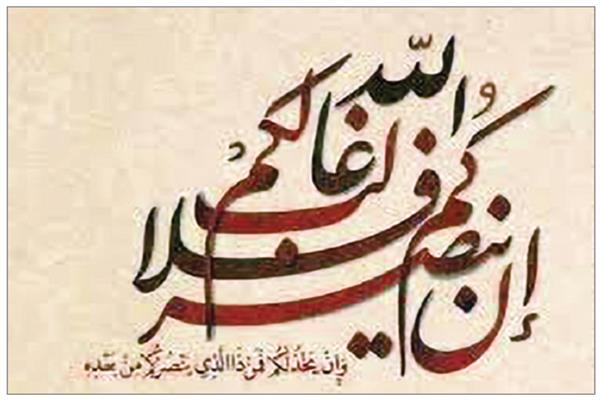 إن ينصركم الله فلا غالب لكم
وَإِنْ يَخْذُلْكُمْ فَمَنْ ذَا الَّذِي يَنْصُرُكُمْ مِنْ بَعْدِهِ